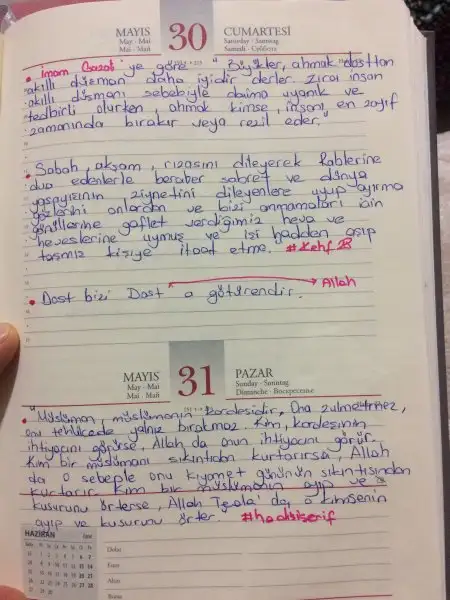 MAYIS
May - Mai
Mai - Май
30
CUMARTESİ
Saturday - Samstag
Samedi - Суббота
• İmam Gazali'ye göre " Büyükler, ahmak dosttan
akıllı düşman daha iyidir derler. Zira insan
akıllı düşmanı sebebiyle daima uyanık ve
tedbirli olurken, ahmak kimse, insanı en zayıf
zamanında bırakır veya rezil eder."
• Sabah, akşam, rızasını dileyerek Rablerine
dua edenlerle beraber sabret ve dünya
yaşayışının ziynetini dileyenlere uyup ayırma
gözlerini onlardan ve bizi anmamaları için
gönüllerine gaflet verdiğimiz heva ve
heveslerine uymuş ve işi hadden aşıp
taşmış kişiye itaat etme. #Kehf 28
Allah
• Dost bizi Dost'a götürendir.
MAYIS
May - Mai
Mai - Май
31
PAZAR
Sunday - Sonntag
Dimanche - Воскресенье
• "Müslüman, müslümanın kardeşidir, Ona zulmetmez,
onu tehlikede yalnız bırakmaz. Kim, kardeşinin
ihtiyacını görürse, Allah da onun ihtiyacını görür.
Kim bir müslümanı sıkıntıdan kurtarırsa, Allah
da o sebeple onu kıyamet gününün sıkıntısından
kurtarır. Kim bir müslümanın ayıp ve
kusurunu örterse, Allah Teala' da, o kimsenin
ayıp ve kusurunu örter. #hadisişerif
HAZİRAN June